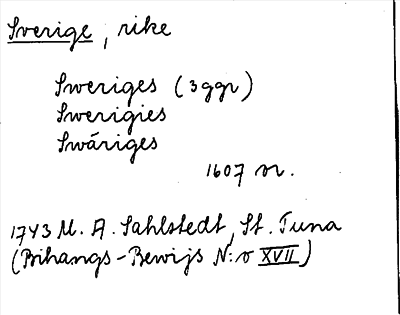 Sverige, rike
Sweriges (3 ggr)
Swerigies
Swäriges
1607 nr.
1743 M. A. Sahlstedt, St. Tuna
(Bihangs-Bewijs N:o XVII)